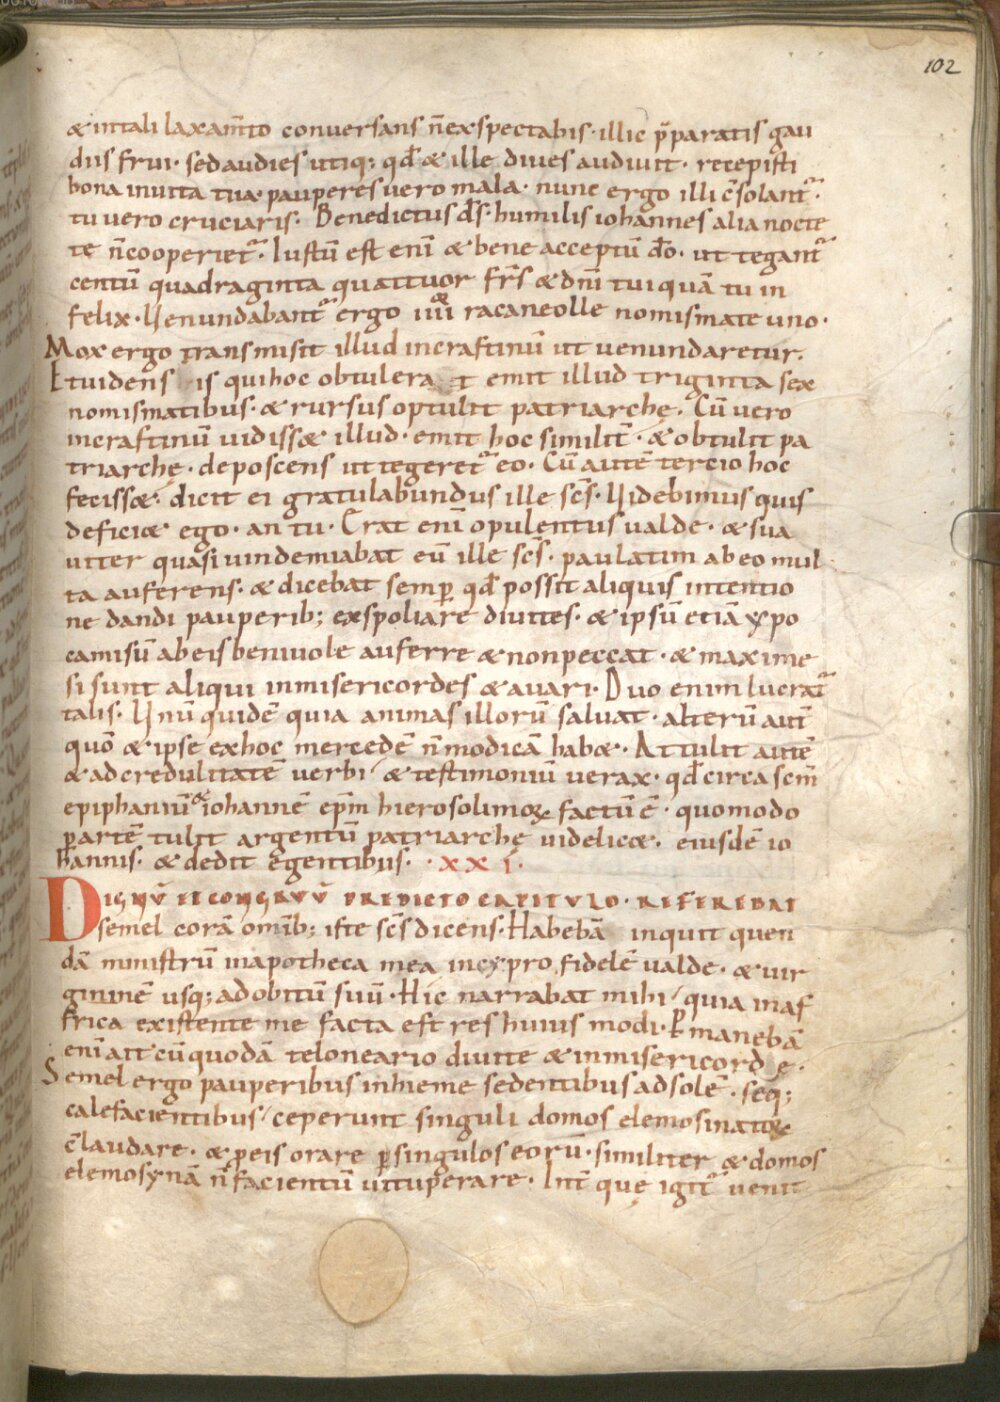 102
& intali laxam̄to conuersans n̄ exspectabis· illic p̄paratis gau
diis frui· sed audies utiq; qđ & ille diues audiuit· recepisti
bona inuita tua· pauperes uero mala· nunc ergo illi c̄solant᷑·
tu uero cruciaris· Benedictus d̄s· humilis iohannes alia nocte
te n̄ cooperiet᷑· Iustū est enī & bene acceptū dō· ut tegant᷑
centū quadraginta quattuor fr̄s & dn̄i tui quā tu in
felix· Uenundabant᷑ ergo iiii racaneolle nomismate uno·
Mox ergo transmisit illud incrastinū ut uenundaretur·
Et uidens is qui hoc obtulera t emit illud triginta sex
nomismatibus· & rursus optulit patriarchę· Cū uero
incrastinū uidiss& illud· emit hoc similit̄· & obtulit pa
triarchę· deposcens ut tegeret᷑ eo· Cū autē tercio hoc
feciss&· dicit ei gratulabundus ille sc̄s· Uidebimus quis
defici& ego· an tu· Erat enī opulentus ualde· & sua
uiter quasi uindemiabat eū ille sc̄s· paulatim ab eo mul
ta auferens· & dicebat semp̱ qđ possit aliquis intentio
ne dandi pauperib; exspoliare diuites· & ipsū etiā xp̄o
camisū ab eis beniuole auferre & non peccat· & maxime
si sunt aliqui inmisericordes & auari· Duo enim lucrat᷑
talis· Unū quidē quia animas illorū saluat· alterū aut̄
quō & ipse ex hoc mercedē n̄ modicā hab&· Attulit autē
& ad credulitatē uerbi & testimoniū uerax· qđ circa sc̄m
epiphaniū & iohannē ep̄m hierosolimoꝝ factū ē· quomodo
p̱ artē tulit argentū patriarchę uidelic&· eiusdē io
hannis· & dedit egentibus· ·XXI·
DIGNŪ ET CONGRUŪ PREDICTO CAPITULO· REFEREBAT
semel corā omīb; iste sc̄s dicens· Habebā inquit quen
dā ministrū in apotheca mea in exp̱ro fidelē ualde· & uir
gininē usq; ad obitū suū· Hic narrabat mihi quia in af
frica existente me facta est res huius modi· P̱manebā
enī ait cū quodā teloneario diuite & inmisericord e·
Semel ergo pauperibus in hieme sedentibus ad solē· seq;
calefacientibus ceperunt singuli domos elemosinatoꝝ
c̄laudare· & p̱ eis orare p̱ singulos eorū· similiter & domos
elemosynā n̄ facientiū uituperare· Int̄ que igit᷑ uenit